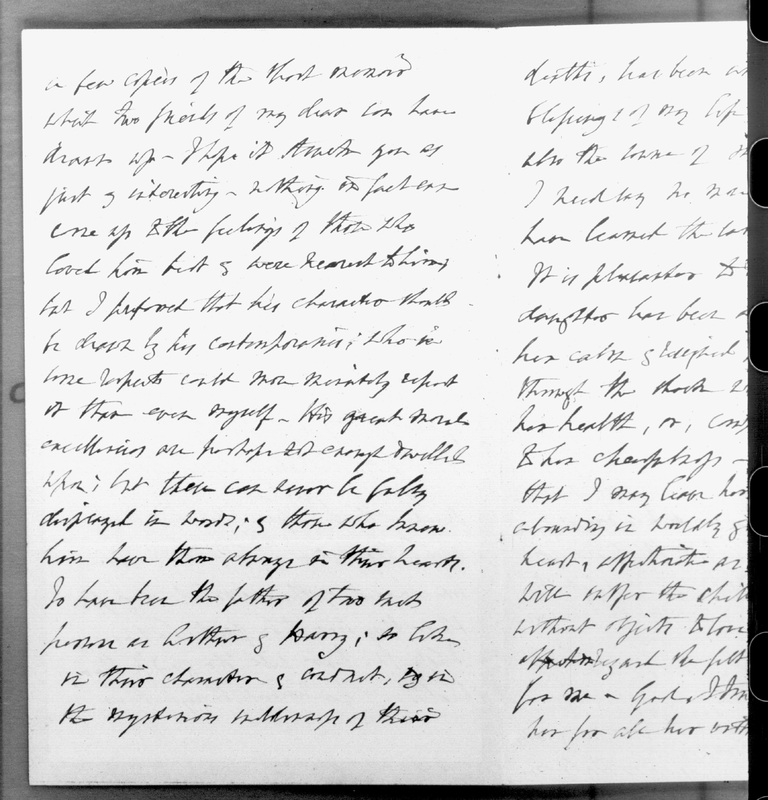 a few copies of the short memoir
which two friends of my dear son have
drawn up - I hope it strikes you as
just & interesting - nothing in fact can
come up to the feelings of those who
loved him best & were nearest to him;
but I preferred that his character should
be drawn by his contemporaries; who in
some respects could more minutely report
it than even myself - His great moral
excellencies are perhaps not enough dwelled
upon; but these can never be fully
displayed in words; & those who knew
him have them always in their hearts.
To have been the father of two such
persons as Arthur & Harry; so like
in their character & conduct, & in
the mysterious suddenness of their
deaths, has been
blessings of my life
also the source of
I need say no more
have learned the
It is pleasanter to
daughter has been
her calm & resigned
through the shock
her health, or,
to her cheerfulness -
that I may leave her
abounding in worldly
heart, affectionate as
will suffer the
without objects to love
regard she felt
for me - God,
her for all her